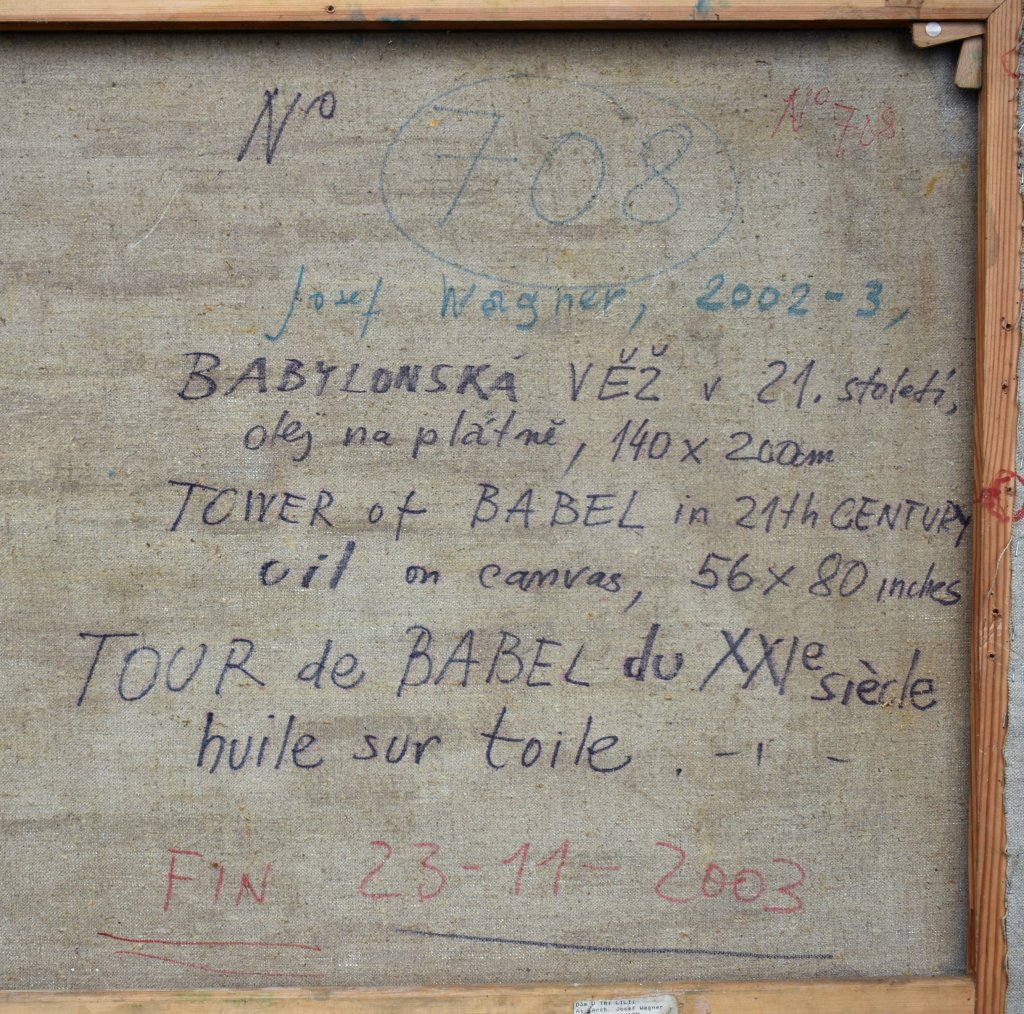 Nº 708 Nº 708
Josef Wagner, 2002-3,
BABYLONSKÁ VĚŽ v 21. století,
olej na plátně, 140 x 200cm
TOWER of BABEL in 21th CENTURY
oil on canvas, 56 x 80 inches
TOUR de BABEL du XXIe siècle
huile sur toile . - ı -
FIN 23-11-2003
Dům U TŘÍ LILIÍ
Arch. Josef Wagner